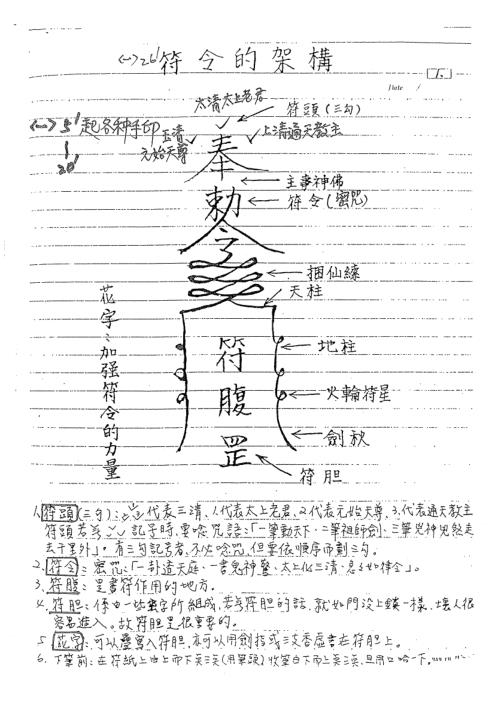 符令的架構
Date /
太清太上老君
符頭(三勾)
起各种手印
玉清
元始天尊
上清通天教主
奉
主事神佛
勅
符令(密咒)
令
捆仙繩
天柱
花字:加强符令的力量
符
地柱
腹
火輪符星
劍秋
罡
符胆
1. 符頭(三勾):代表三清,1.代表太上老君,2.代表元始天尊,3.代表通天教主
符頭若為 記字時,要唸咒語:「一筆動天下、二筆祖師劍、三筆兇神惡煞走
去千里外」。有三勾記号者,不必唸咒,但要依順序而劃三勾。
2. 符令:密咒:「一卦道天庭、一書鬼神驚、太上化三清、急急如律令」。
3. 符腹:是書符作用的地方。
4. 符胆:係由一些 字所組成,若為符胆的話,就如門沒上鎖一樣,壞人很
容易進入。故符胆是很重要的。
5. 花字:可以疊寫入符胆,亦可以用劍指或三支香虛書在符胆上。
6. 下筆前:在符紙上由上而下 (用筆頭)收筆自下而上 ,且用口哈一下。